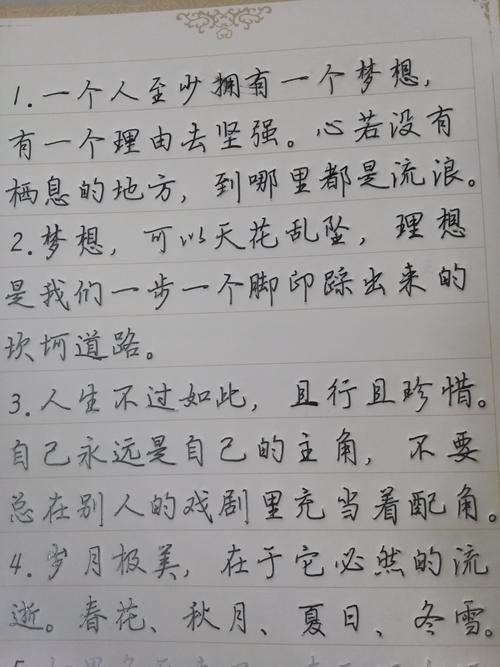 1.一个人至少拥有一个梦想，
有一个理由去坚强。心若没有
栖息的地方，到哪里都是流浪。
2.梦想，可以天花乱坠，理想
是我们一步一个脚印踩出来的
坎坷道路。
3.人生不过如此，且行且珍惜。
自己永远是自己的主角，不要
总在别人的戏剧里充当着配角。
4.岁月极美，在于它必然的流
逝。春花、秋月、夏日、冬雪。